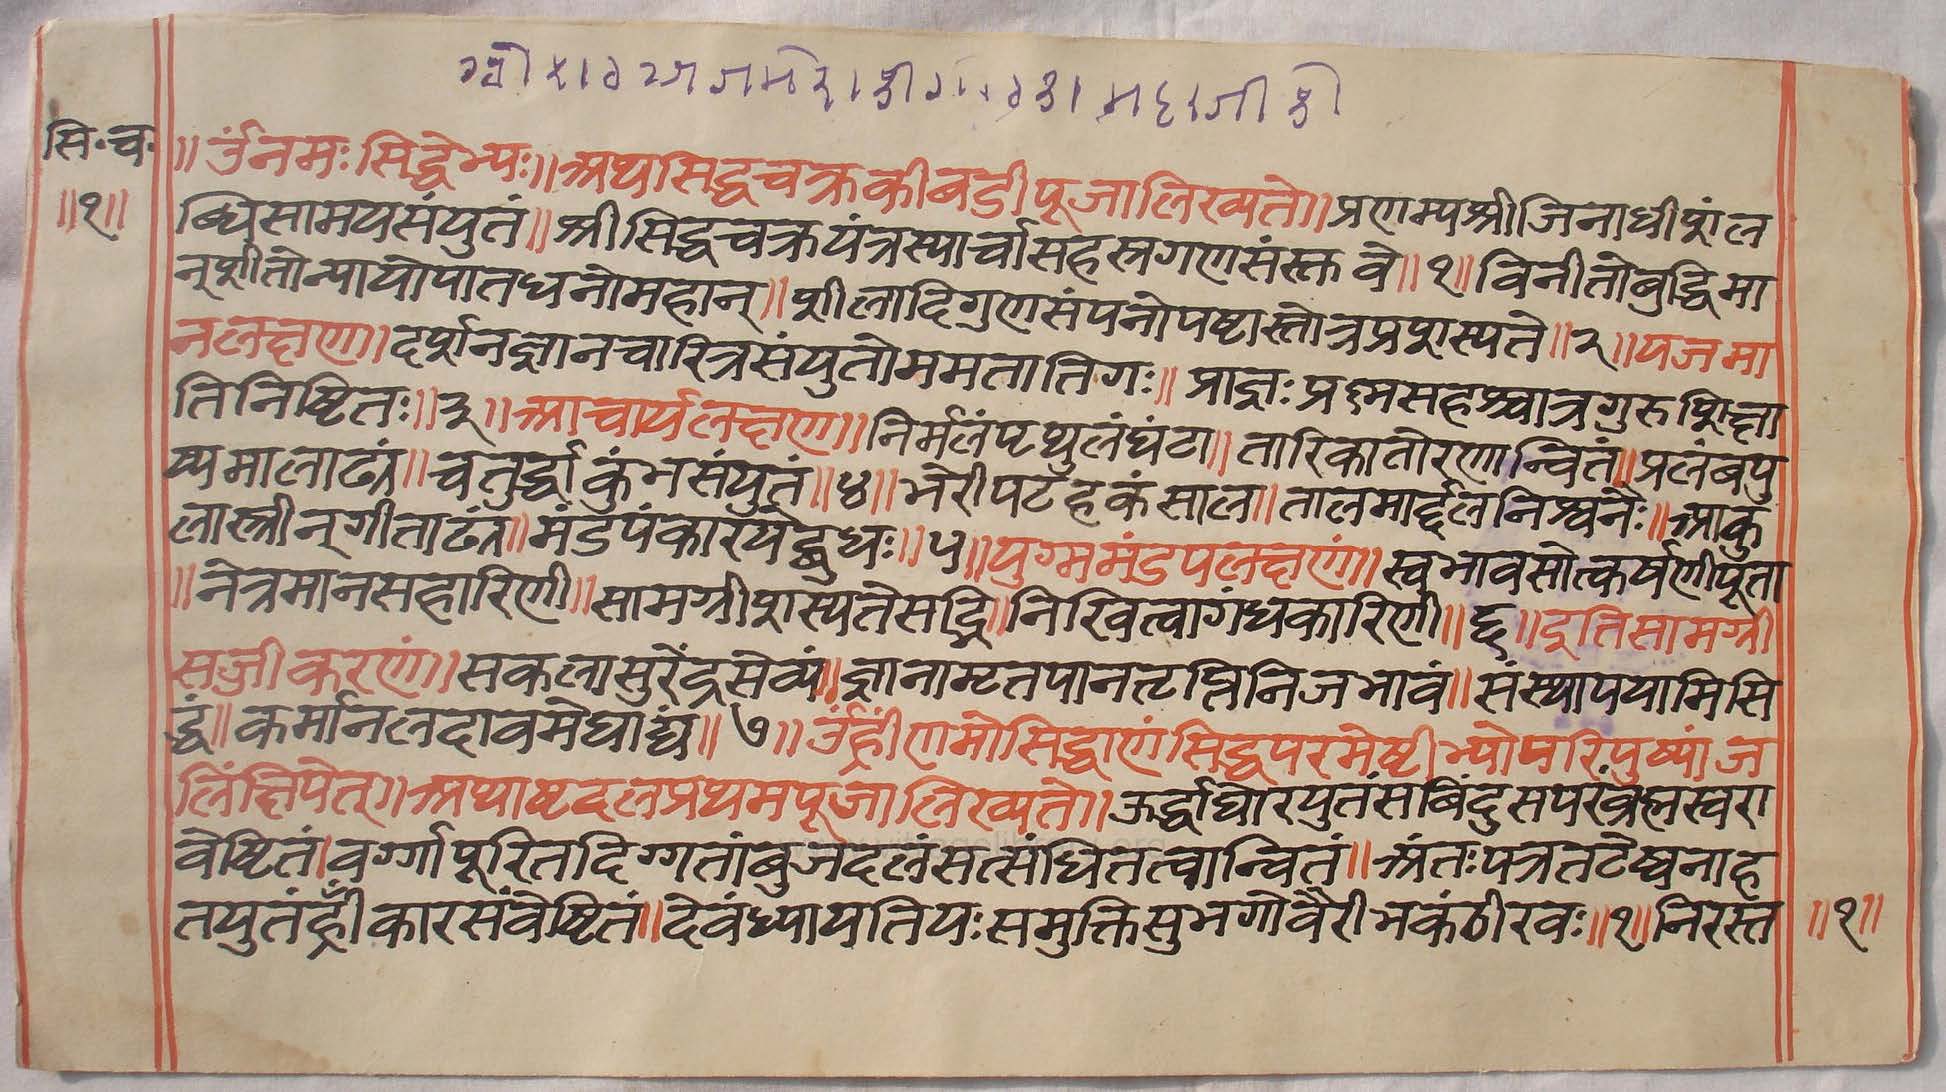 सि·च·
॥१॥
॥ॐनमः सिद्धेभ्यः॥अथसिद्धचक्रकीबडीपूजालिख्यते॥प्रणम्यश्रीजिनाधीशंल
ब्धिसामयसंयुतं॥श्रीसिद्धचक्रयंत्रस्यार्चासहस्त्रगणसंस्तवे॥१॥विनीतोबुद्धिमा
न्शीतोन्यायोपातधनोमहान्॥शीलादिगुणसंपनोपष्टास्तोत्रप्रशस्यते॥२॥यजमा
नलक्षण॥दर्शनज्ञानचारित्रसंयुतोममतातिगः॥प्राज्ञः प्रक्ष्मसहश्चात्रगुरुशिक्षा
तिनिष्टितः॥३॥आचार्यलक्षण॥निर्मलंष्टथुलंघंटा॥तारिकातोरणान्वितं॥प्रलंबपु
ष्यमालाढ्यं॥चतुर्द्धाकुंभसंयुतं॥४॥भेरीपटहकंसाल॥तालमार्द्दलनिश्वनैः॥आकु
लास्त्रीन्गीताढ्यं॥मंडपंकारयेद्बुधः॥५॥युग्ममंडपलक्षणं॥स्वभावसोत्कर्षणीपूता
॥नेत्रमानसहारिणी॥सामग्रीशस्यतेसद्भि॥निखित्वागंधकारिणी॥६॥इतिसामग्री
सजीकरणं॥सकलासुरेंद्रसेव्यं॥ज्ञानामृतपानतृप्तिनिजभावं॥संस्थापयामिसि
द्धं॥कर्मानलदावमेघाद्यं॥७॥ॐह्रींणमोसिद्धाणंसिद्धपरमेष्टीभ्योपरिपुष्पांज
लिंक्षिपेत्॥अथाष्टदलप्रथमपूजालिख्यते॥ऊर्द्धाधोरयुतंसबिंदुसपरंब्रह्मस्वरा
वेष्टितं।वर्ग्गापूरितदिग्गतांबुजदलंसत्संधितत्वान्वितं॥अंतःपत्रतटेष्वनाह
तयुतंह्रींकारसंवेष्टितं॥देवंध्यायतियःसमुक्तिसुभगोवैरीभकंठीरवः॥१॥निरस्त
॥१॥